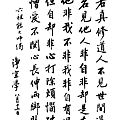 若真修道人不見世間過
若見他人非自非却是左
他非我不非我非自有過
但自却非心打除煩惱破
憎愛不關心長伸兩腳臥
六祖能大師偈
淨空學